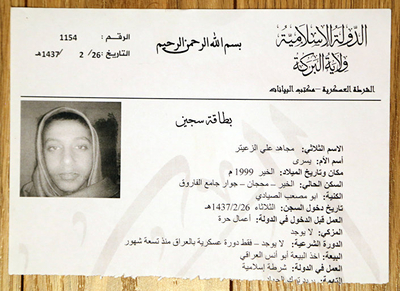 الدولة الإسلامية
ولاية البركة
بسم الله الرحمن الرحيم
الرقم : 1154
التاريخ: 26/ 2 /1437هـ
الشرطة العسكرية -مكتب البيانات
بطاقة سجين
الاسم الثلاثي: مجاهد علي الزعيتر
اسم الأم: يسرى
مكان وتاريخ الميلاد: الخبر 1999 م
السكن الحالي: الخبر – محجان – جوار جامع الفاروق
الكنية: ابو مصعب الصيادي
تاريخ دخول السجن: الثلاثاء 1437/2/26هـ
العمل قبل الدخول في الدولة: أعمال حرة
المزكي: لا يوجد
الدورة الشرعية: لا يوجد – فقط دورة عسكرية بالعراق منذ تسعة شهور
البيعة: اخذ البيعة أبو أنس العراقي
العمل في الدولة: شرطة إسلامية